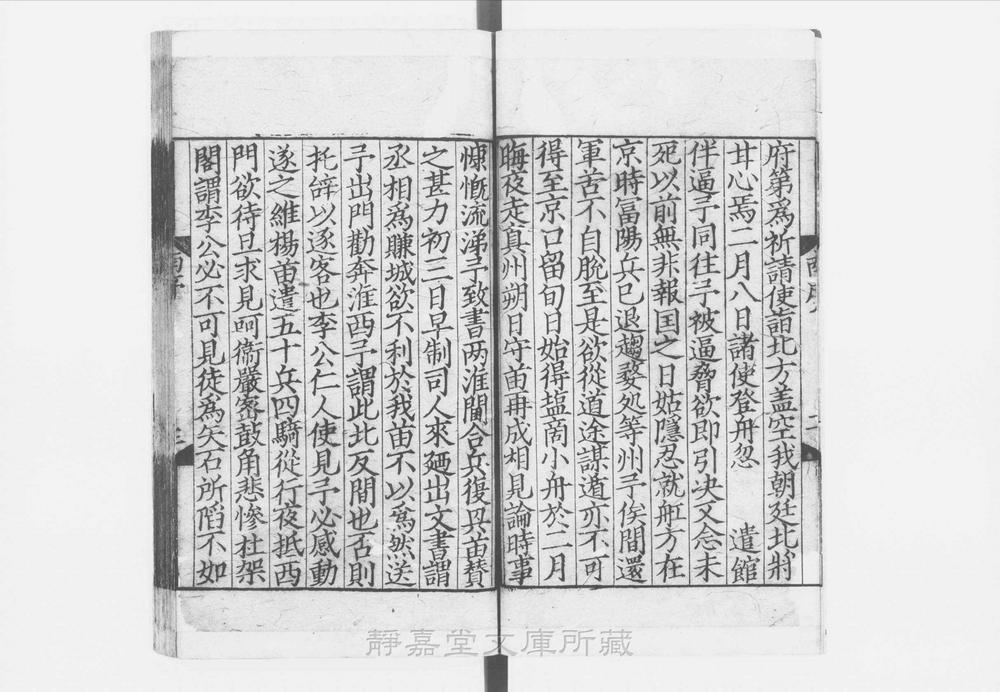 府第為祈請使詣北方盖空我朝廷北將
甘心焉二月八日諸使登舟忽　遣館
伴逼予同往予被逼脅欲即引决又念未
死以前無非報国之日姑隱忍就舡方在
京時冨陽兵已退趨婺処等州予俟間還
軍苦不自脫至是欲從道途謀遁亦不可
得至京口留旬日始得塩商小舟於二月
晦夜走真州朔日守苗再成相見論時事
慷慨流涕予致書两淮閫合兵復吳苗賛
之甚力初三日早制司人來廼出文書謂
丞相為賺城欲不利於我苗不以為然送
予出門勸奔淮西予謂此北反間也否則
托辝以逐客也李公仁人使見予必感動
遂之維楊苗遣五十兵四騎從行夜抵西
門欲待旦求見呵衞嚴宻鼓角悲慘杜架
閣謂李公必不可見徒為矢石所陷不如
靜嘉堂文庫所藏